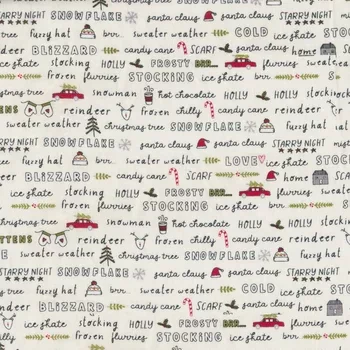 SNOWFLAKE santa claus santa claus STARRY NIGHT
furry hat brr.. sweater weather COLD
christmas tree BLIZZARD candy cane SCARF santa claus home
ice skate stocking HOLLY FROSTY BRR... ice skate
frozen flurries STOCKING ice skate brr..
reindeer snowman hot chocolate HOLLY
TTENS reindeer frozen chilly candy cane
sweater weather christmas tree SNOWFLAKE furry hat
furry hat brr.. sweater weather LOVE ice skate
BLIZZARD candy cane SCARF santa claus home
ice skate stocking HOLLY FROSTY BRR...
frozen flurries STOCKING ice skate brr..
christmas tree snowman hot chocolate HOLLY
TTENS reindeer frozen chilly candy cane
sweater weather christmas tree SNOWFLAKE furry hat
STARRY NIGHT SNOWFLAKE santa claus santa claus
furry hat brr.. sweater weather COLD
christmas tree BLIZZARD candy cane SCARF santa claus home
ice skate stocking HOLLY FROSTY BRR... ice skate
frozen flurries STOCKING ice skate brr..